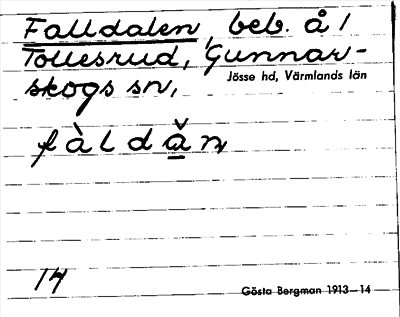 Falldalen, beb. å 1
Tollesrud, Gunnar-
skogs sn,
Jösse hd, Värmlands län
fàldǎ̠n
14
Gösta Bergman 1913—14